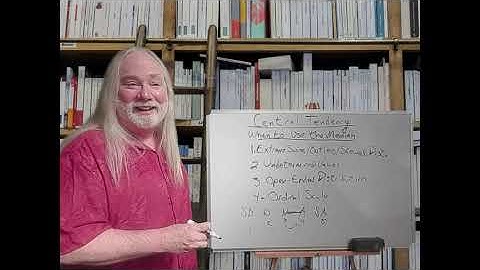 Central Tendency
When to Use the Median
1. Extreme Scores/Outlier/Skewed Dist.
2. Undetermined Values
3. Open-Ended Distribution
4- Ordinal Scale
SD D N A SA